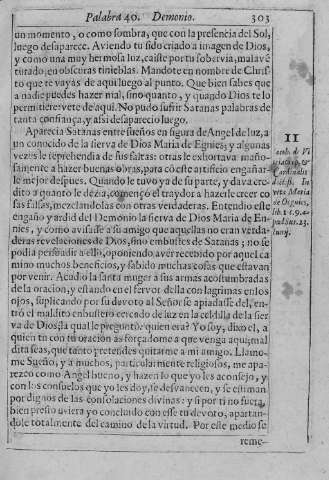 Palabra 40. Demonio. 303
un momento, o como sombra, que con la presencia del Sol,
luego desaparece. Aviendo tu sido criado a imagen de Dios,
y como una muy hermosa luz, caiste por tu sobervia, malave
turado, en obscuras tinieblas. Mandote en nombre de Chris-
to que te vayas de aqui luego al punto. Que bien sabes que
a nadie puedes hazer mal, sino quanto, y quando Dios te lo
permitiere vete de aqui. No pudo sufrir Satanas palabras de
tanta confiança, y assi desaparecio luego.
Aparecia Satanas entre sueños en figura de Angel de luz, a
un conocido de la sierva de Dios Maria de Egnies; y algunas
vezes le reprehendia de sus faltas: otras le exhortava maño-
samente a hazer buenas obras, para cō este artificio engañar-
le mejor despues. Quando le tuvo ya de su parte, y dava cre-
dito a quanto le dezia, començò el traydor a hazerle creer co
sas falsas, mezclandolas con otras verdaderas. Entendio este
engaño y ardid del Demonio la sierva de Dios Maria de En-
nies, y como avisasse a su amigo que aquellas no eran verda-
deras revelaciones de Dios, sino embustes de Satanas; no se
podia persuadir a ello, oponiendo, aver recebido por aquel ca
mino muchos beneficios, y sabido muchas cosas que estavan
por venir. Acudio la santa muger a sus armas acostumbradas
de la oracion, y estando en el fervor della con lagrimas en los
ojos, suplicando por su devoto al Señor se apiadasse del, en-
trò el maldito embustero cercado de luz en la celdilla de la sier
va de Dios; la qual le preguntò: quien era? Yo soy, dixo el, a
quien tu con tu oracion às forçadome a que venga aqui; mal
dita seas, que tanto pretendes quitarme a mi amigo. Llamo-
me Sueño, y a muchos, particularmente religiosos, me apa-
rezco como Angel bueno, y hazen lo que yo les aconsejo, y
con los consuelos que yo les doy, se desvanecen, y se estiman
por dignos de las consolaciones divinas: y si por ti no fuera,
bien presto uviera yo concluido con esse tu devoto, apartan-
dole totalmente del camino de la virtud. Por este medio se
reme-
II
Iacob. d Vi
triaco Ep. &
Cardinalis
dict. ss. In
vita Mariæ
de Ognies,
lib. 1. c. 9. a-
pud sur. 23.
Iunij.